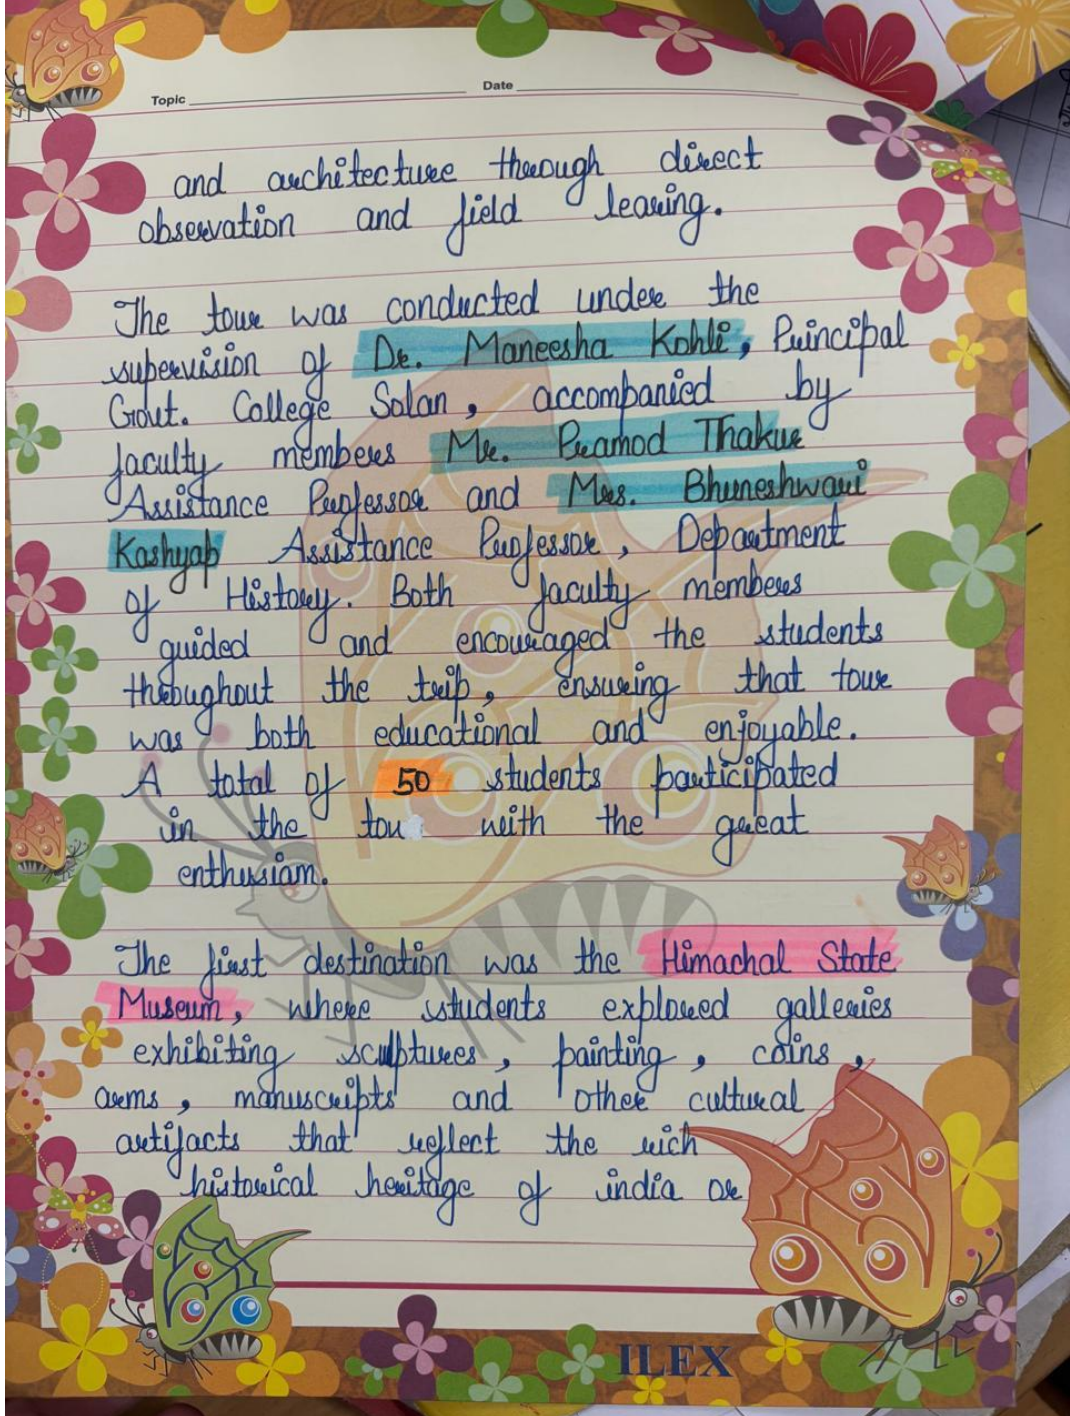 Topic
Date
and architecture through direct
observation and field learing.
The tour was conducted under the
supervision of Dr. Maneesha Kohli, Principal
Govt. College Solan, accompanied by
faculty members Mr. Pramod Thakur
Assistance Professor and Mrs. Bhuneshwari
Kashyap Assistance Professor, Department
of History. Both faculty members
guided and encouraged the students
throughout the trip, ensuring that tour
was both educational and enjoyable.
A total of 50 students participated
in the tou with the great
enthusiam.
The first destination was the Himachal State
Museum, where students explored galleries
exhibiting sculptures, painting, coins,
arms, manuscripts and other cultural
artifacts that reflect the rich
historical heritage of india or
ILEX